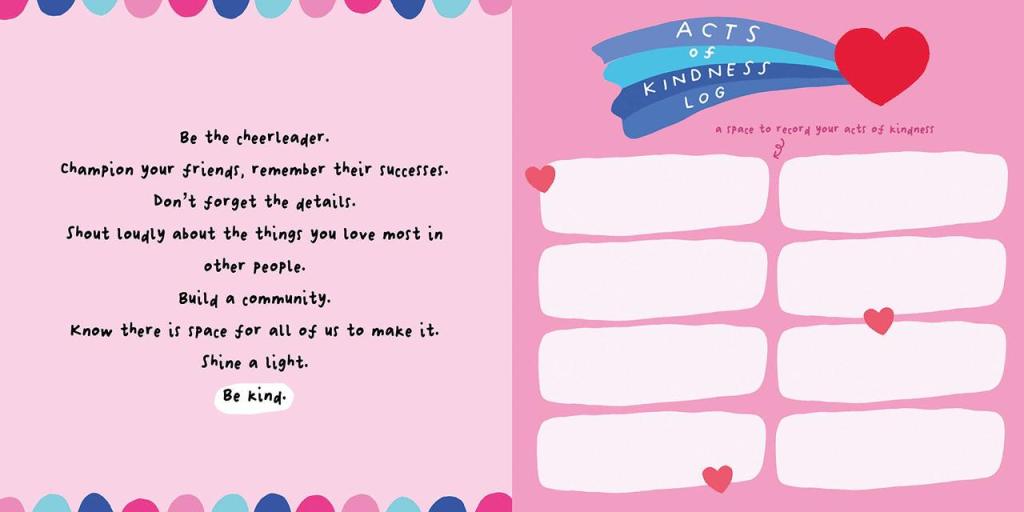 Be the cheerleader.
Champion your friends, remember their successes.
Don't forget the details.
Shout loudly about the things you love most in
other people.
Build a community.
Know there is space for all of us to make it.
Shine a light.
Be kind.
ACTS
of
KINDNESS
LOG
a space to record your acts of kindness